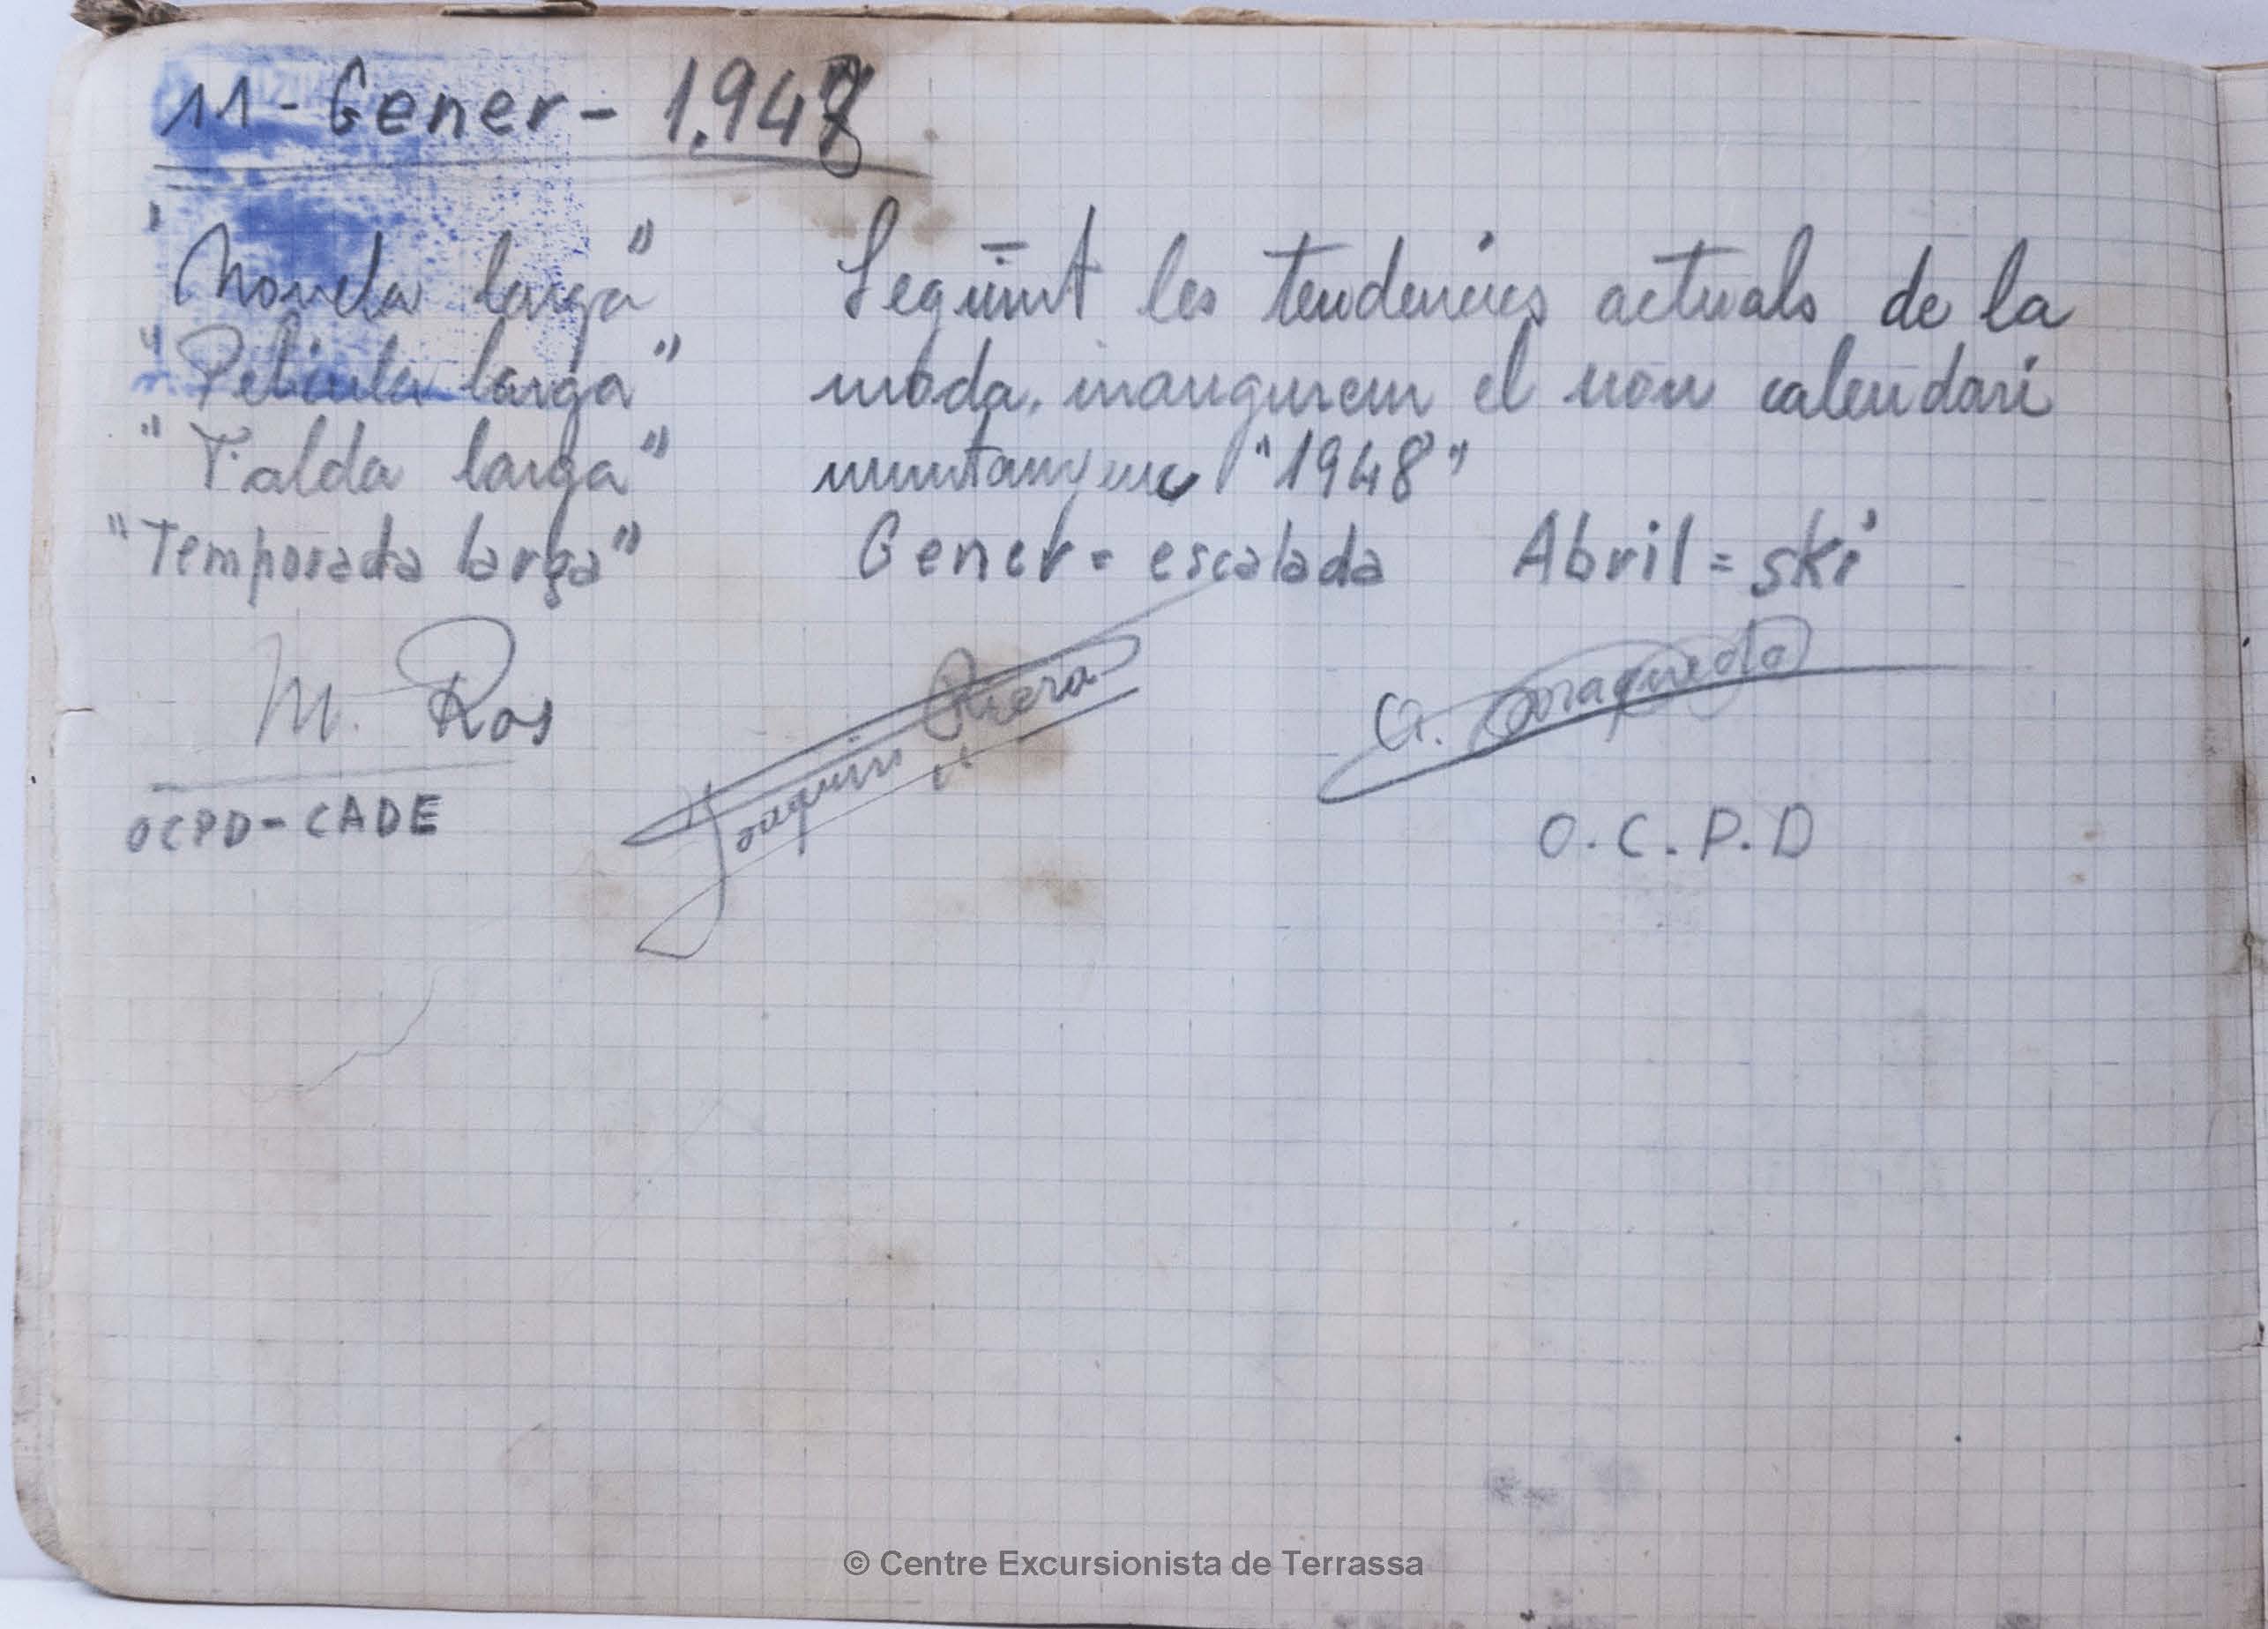 11 - Gener - 1.948
"Novela larga"
"Pelicula larga"
"Falda larga"
"Temporada larga"
Següint les tendencies actuals de la
moda, inaugurem el nou calendari
muntanyenc "1948"
Gener = escalada Abril = ski
M. Ros
OCPD - CADE
Joaquin Riera
O.C.P.D
© Centre Excursionista de Terrassa